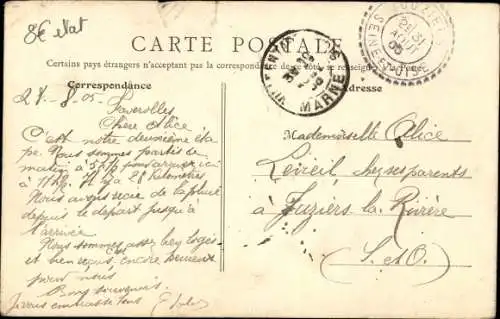 8€ etat
CARTE POSTALE
Certains pays étrangers n'acceptent pas la correspondance de ce côté, se renseigner à la Poste.
Correspondance
28-8-05. Faverolles
Chère Alice
C'est notre deuxième éta
pe. Nous sommes partis ce
matin à pour arriver ici
à 11h. Il y a 28 kilomètres
Nous avons de la pluie
depuis le départ jusqu'à
l'arrivée
Nous sommes assez bien logés
et bien reçus encore heureux
pour nous
Bons souvenirs
Je vous embrasse tous
MARNE
SEINE-ET-OISE
31
AOUT
05
Adresse
Mademoiselle Alice
Léveil chez ses parents
à Juziers la Rivière
S. et O.